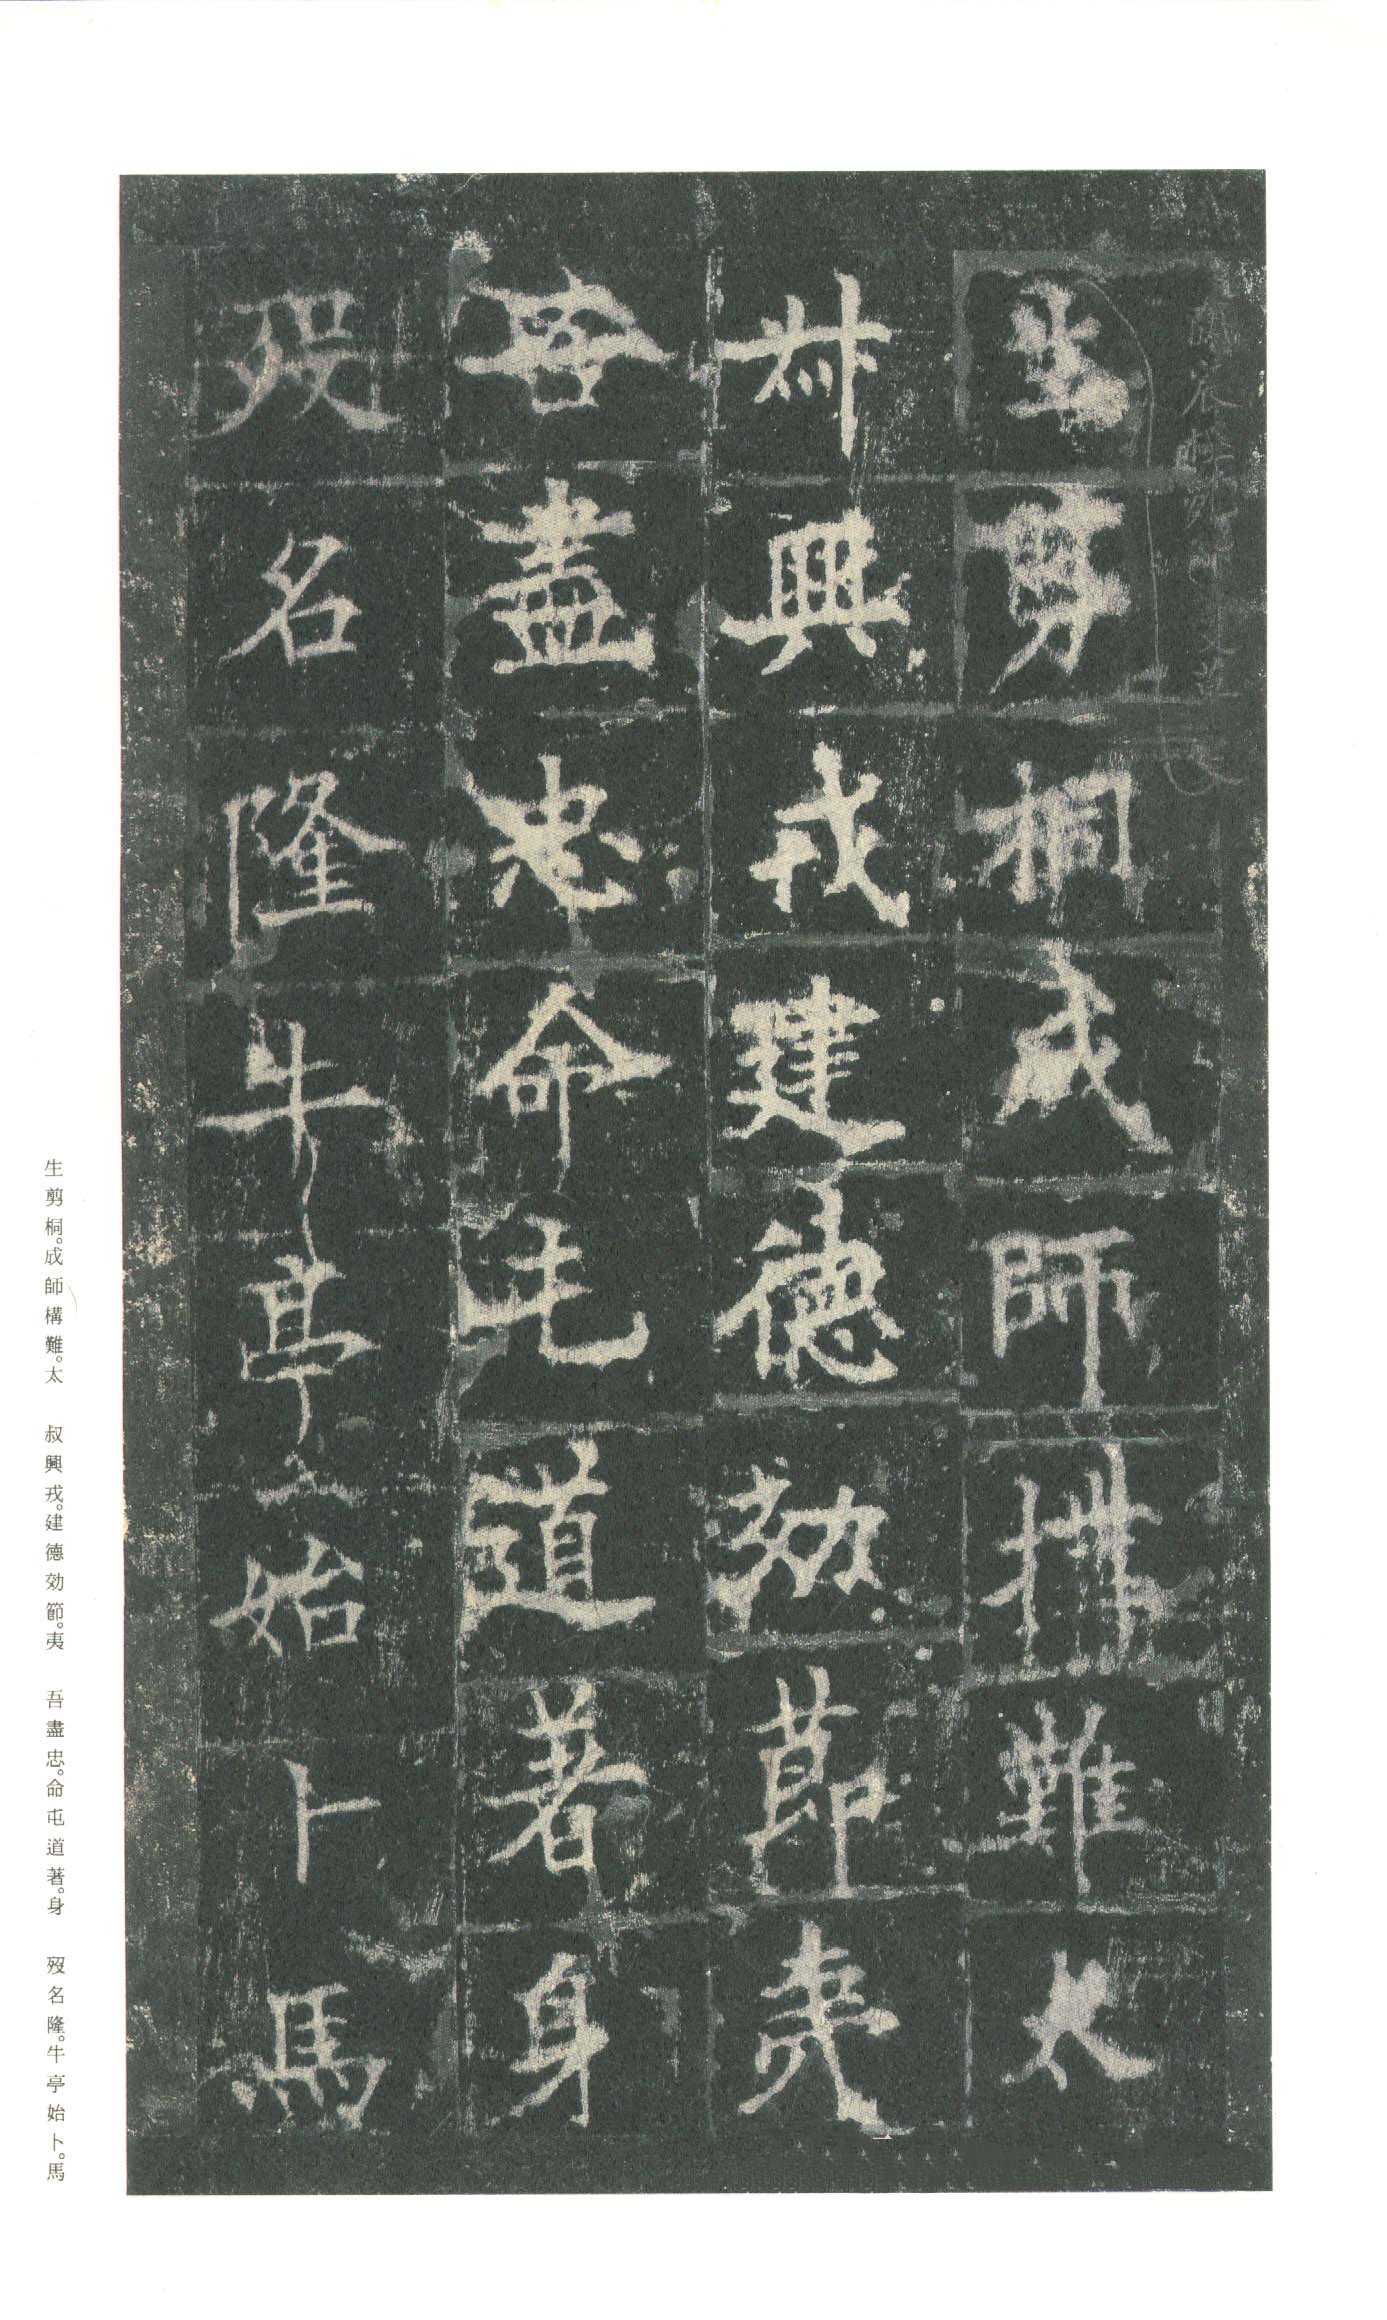 生剪桐成師構難太
叔興戎建德効節夷
吾盡忠命屯道著身
歿名隆牛亭始卜馬
生剪桐。成師構難。太 叔興戎。建德効節。夷 吾盡忠。命屯道著。身 歿名隆。牛亭始卜。馬